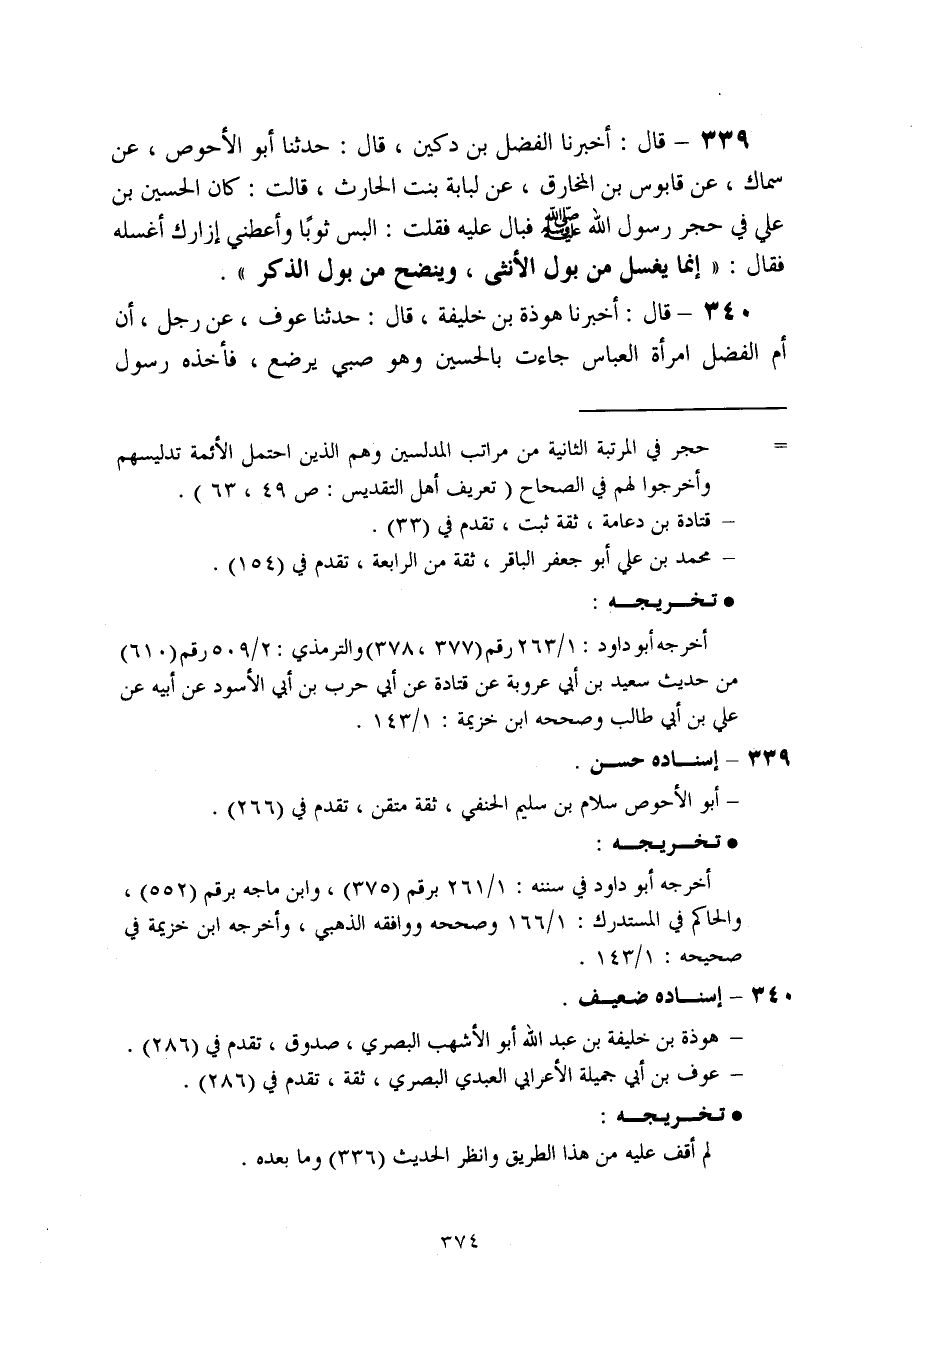 ٣٣٩ – قال : أخبرنا الفضل بن دكين ، قال : حدثنا أبو الأحوص ، عن
سماك ، عن قابوس بن المخارق ، عن لبابة بنت الحارث ، قالت : كان الحسين بن
علي في حجر رسول الله ﷺ فبال عليه فقلت : البس ثوبًا وأعطني إزارك أغسله
فقال : « إنما يغسل من بول الأنثى ، وينضح من بول الذكر » .
٣٤٠ – قال : أخبرنا هوذة بن خليفة ، قال : حدثنا عوف ، عن رجل ، أن
أم الفضل امرأة العباس جاءت بالحسين وهو صبي يرضع ، فأخذه رسول
= حجر في المرتبة الثانية من مراتب المدلسين وهم الذين احتمل الأئمة تدليسهم
وأخرجوا لهم في الصحاح ( تعريف أهل التقديس : ص ٤٩ ، ٦٣ ) .
– قتادة بن دعامة ، ثقة ثبت ، تقدم في (٣٣) .
– محمد بن علي أبو جعفر الباقر ، ثقة من الرابعة ، تقدم في (١٥٤) .
● تـخـــريـجـــه :
أخرجه أبو داود : ٢٦٣/١ رقم (٣٧٧ ، ٣٧٨) والترمذي : ٥٠٩/٢ رقم (٦١٠)
من حديث سعيد بن أبي عروبة عن قتادة عن أبي حرب بن أبي الأسود عن أبيه عن
علي بن أبي طالب وصححه ابن خزيمة : ١٤٣/١ .
٣٣٩ – إسنـــاده حســـن .
– أبو الأحوص سلام بن سليم الحنفي ، ثقة متقن ، تقدم في (٢٦٦) .
● تـخـــريـجـــه :
أخرجه أبو داود في سننه : ٢٦١/١ برقم (٣٧٥) ، وابن ماجه برقم (٥٥٢) ،
والحاكم في المستدرك : ١٦٦/١ وصححه ووافقه الذهبي ، وأخرجه ابن خزيمة في
صحيحه : ١٤٣/١ .
٣٤٠ – إسنـــاده ضعيـــف .
– هوذة بن خليفة بن عبد الله أبو الأشهب البصري ، صدوق ، تقدم في (٢٨٦) .
– عوف بن أبي جميلة الأعرابي العبدي البصري ، ثقة ، تقدم في (٢٨٦) .
● تـخـــريـجـــه :
لم أقف عليه من هذا الطريق وانظر الحديث (٣٣٦) وما بعده .
٣٧٤